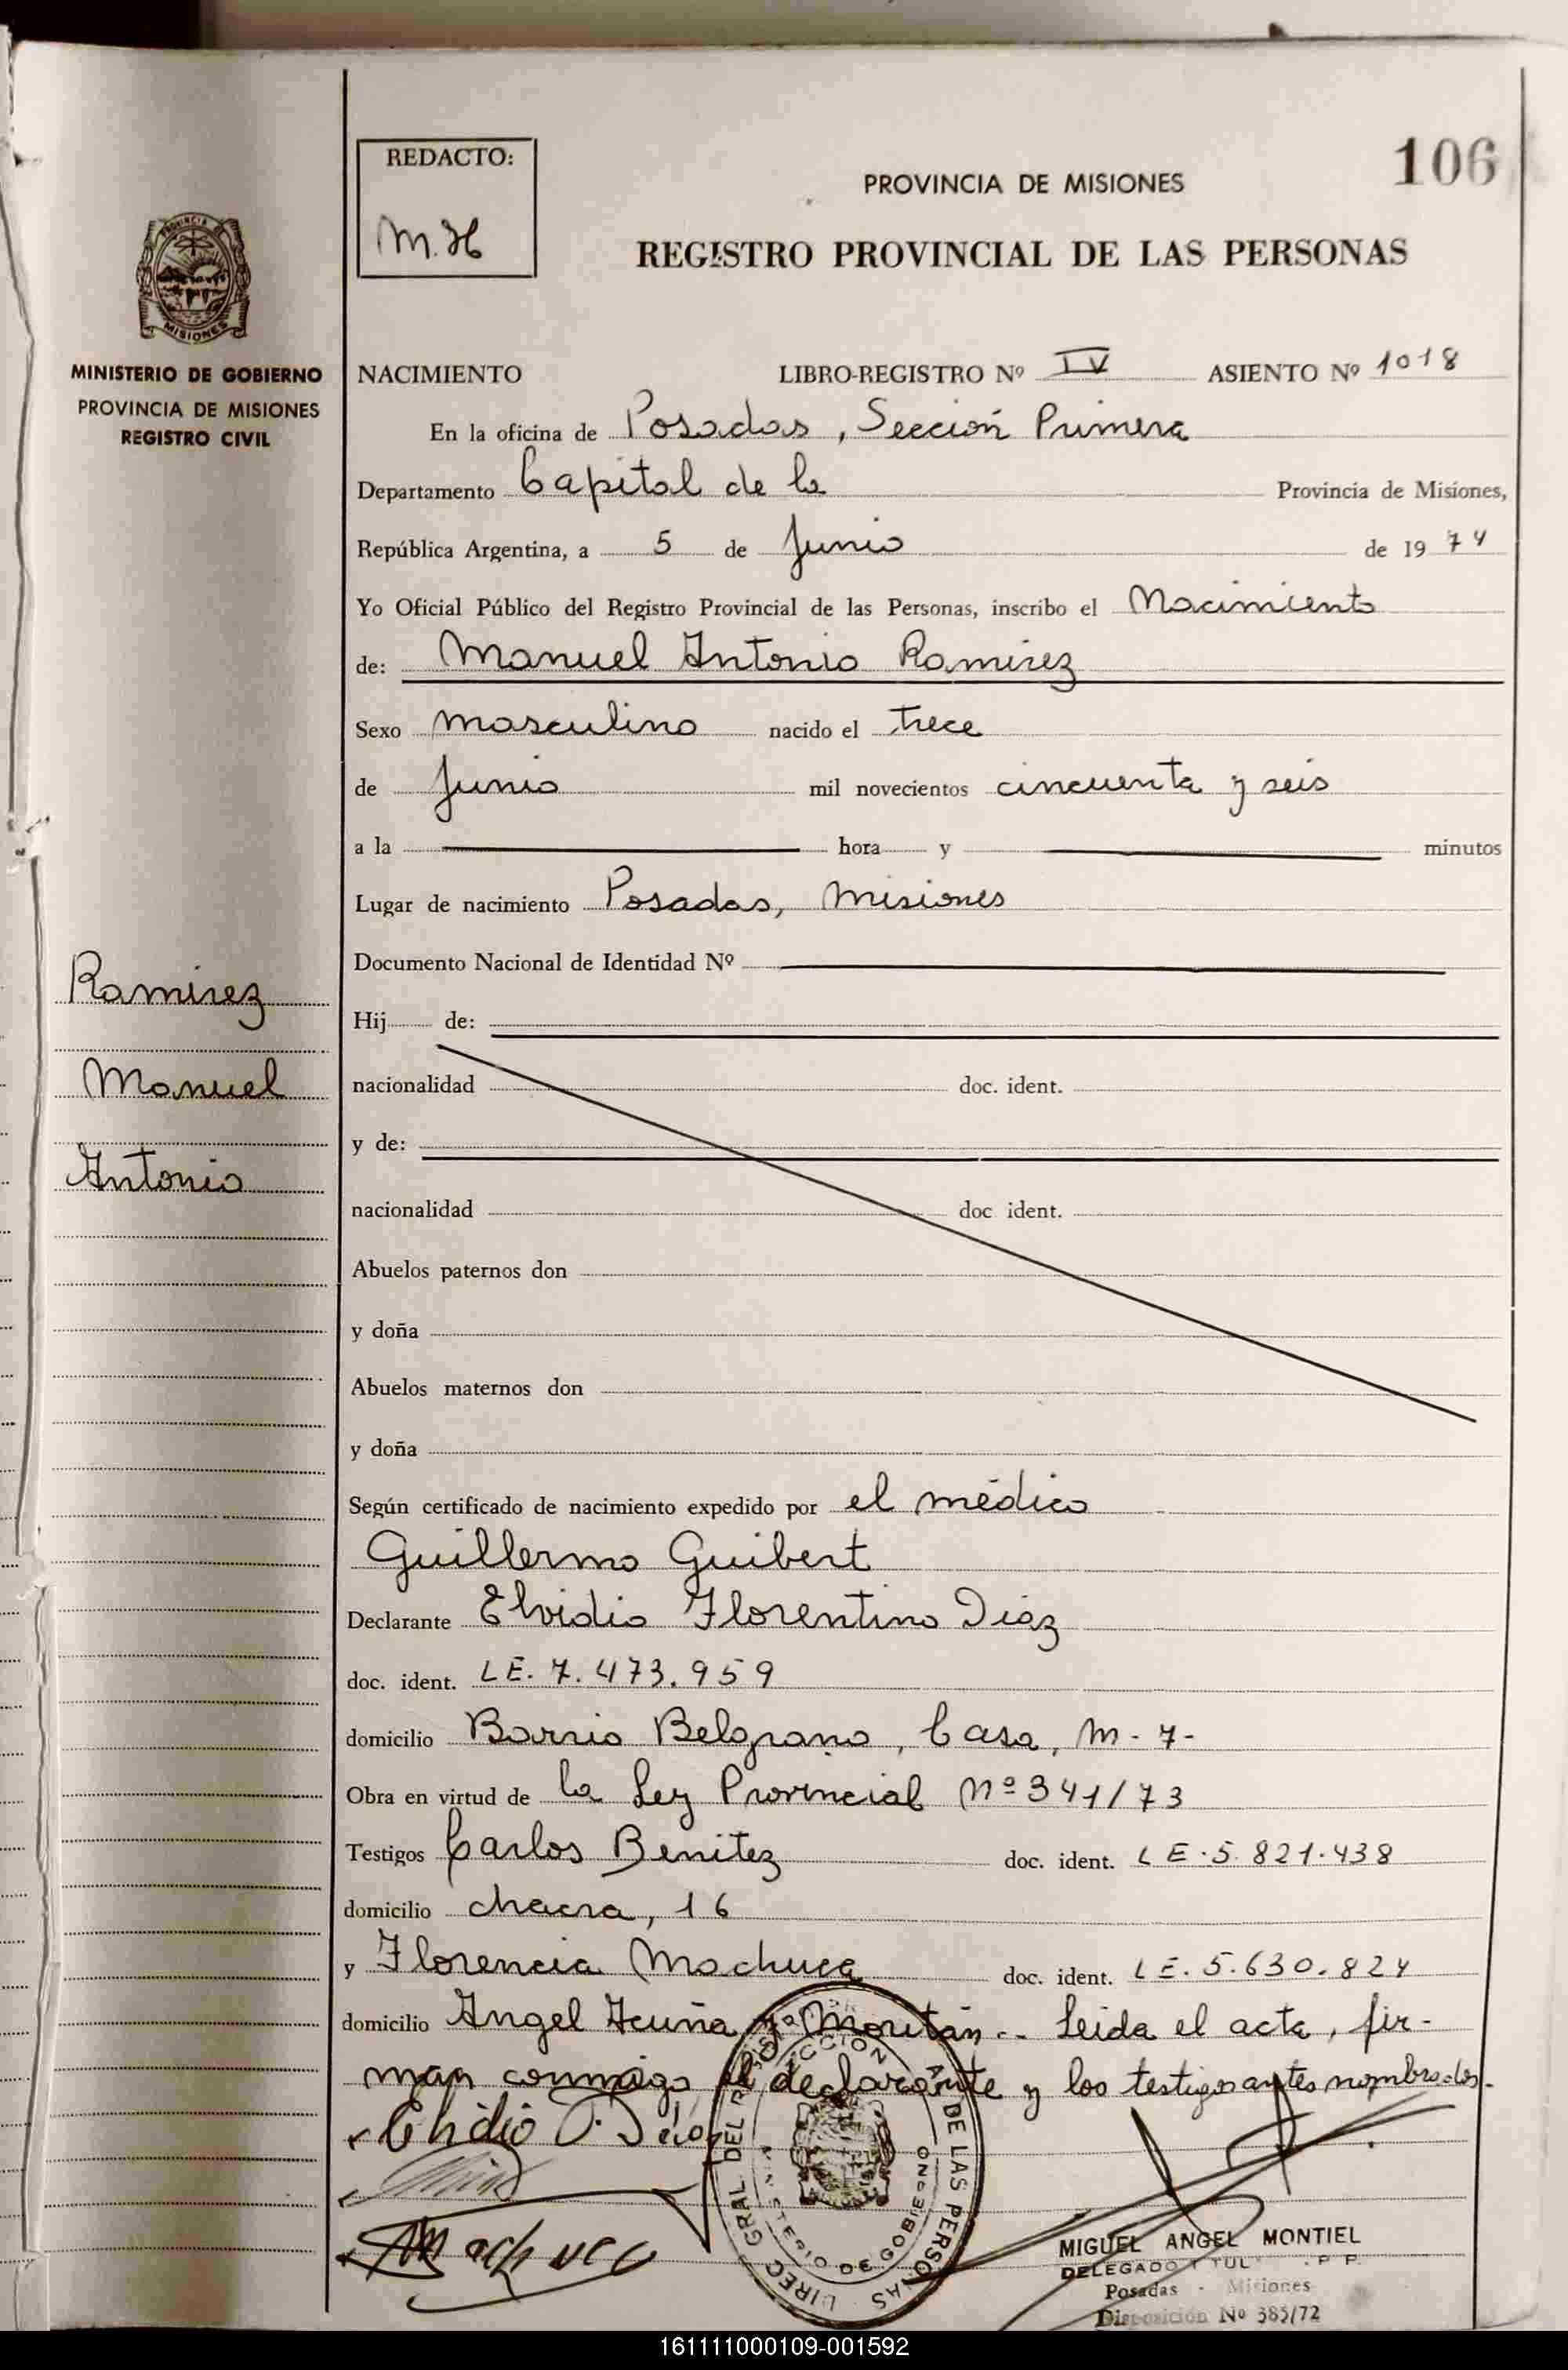 106
REDACTO:
M.H
PROVINCIA DE MISIONES
REGISTRO PROVINCIAL DE LAS PERSONAS
MISIONES
MINISTERIO DE GOBIERNO
PROVINCIA DE MISIONES
REGISTRO CIVIL
NACIMIENTO LIBRO-REGISTRO Nº IV ASIENTO Nº 1018
En la oficina de Posadas, Sección Primera
Departamento Capital de la Provincia de Misiones,
República Argentina, a 5 de Junio de 19 74
Yo Oficial Público del Registro Provincial de las Personas, inscribo el Nacimiento
de: Manuel Antonio Ramirez
Sexo masculino nacido el trece
de Junio mil novecientos cincuenta y seis
a la hora y minutos
Lugar de nacimiento Posadas, Misiones
Documento Nacional de Identidad Nº
Ramirez
Manuel
Antonio
Hij de:
nacionalidad doc. ident.
y de:
nacionalidad doc ident.
Abuelos paternos don
y doña
Abuelos maternos don
y doña
Según certificado de nacimiento expedido por el médico
Guillermo Guibert
Declarante Elvidio Florentino Diaz
doc. ident. LE. 7.473.959
domicilio Barrio Belgrano, Casa, M-7-
Obra en virtud de la Ley Provincial Nº 341/73
Testigos Carlos Benitez doc. ident. LE.5.821.438
domicilio chacra, 16
y Florencia Machuca doc. ident. LE.5.630.824
domicilio Angel Acuña y Moritán.- Leida el acta, fir-
man conmigo el declarante y los testigos antes nombrados.
Elvidio F. Diaz
Machuca
MIGUEL ANGEL MONTIEL
DELEGADO
Posadas - Misiones
Disposición Nº 385/72
161111000109-001592